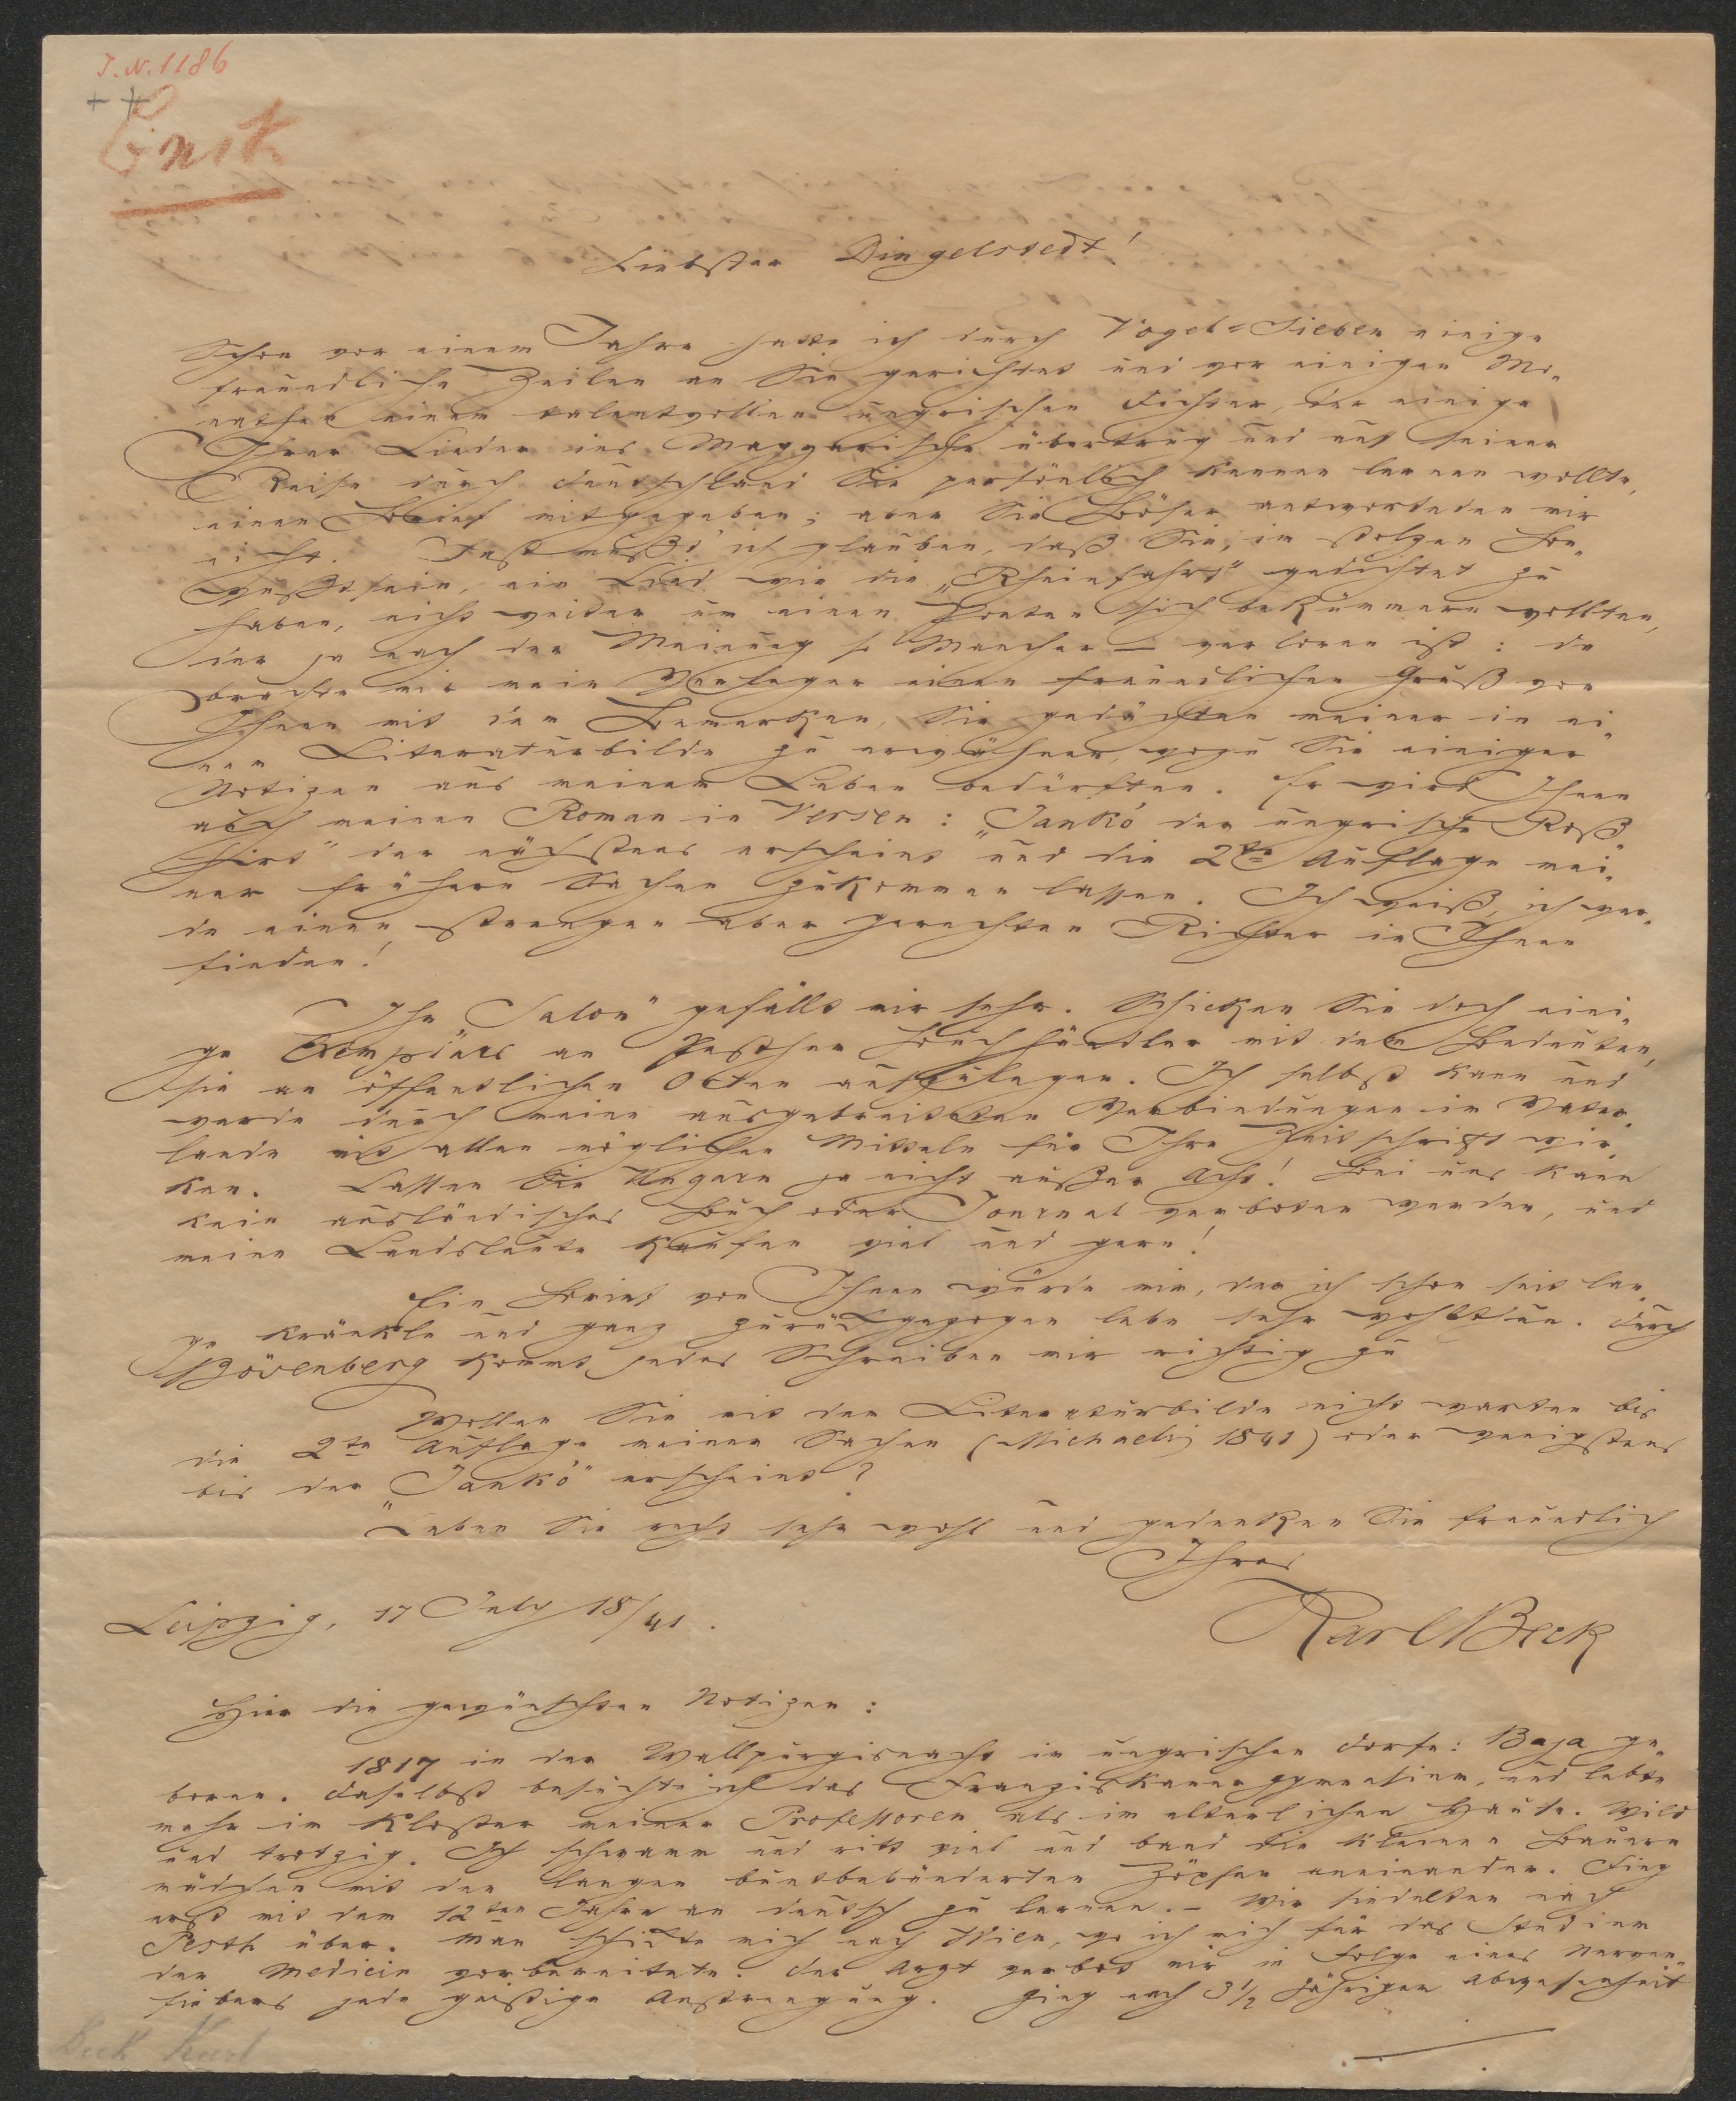 J. N. 1186
Liebster Dingelstedt!
Schon vor einem Jahre hatte ich durch Vogel=Sieben einige
freundliche Zeilen an Sie gerichtet und vor einigen Mo-
nathen einem talentvollen ungrischen Dichter, der einige
Ihrer Lieder ins Magyarische übertrug und auf seiner
Reise durch Deutschland Sie persönlich kennen lernen wollte,
einen Brief mitgegeben; aber Sie Böser antworteten mir
nicht. Fast mußt' ich glauben, daß Sie, im stolzen Be-
wußtsein, ein Lied wie die „Rheinfahrt" gedichtet zu
haben, nicht weiter um einen Poeten sich bekümmern wollten,
der ja nach der Meinung so Mancher — verloren ist: da
brachte mir mein Verleger einen freundlichen Gruß von
Ihnen mit dem Bemerken, Sie gedächten meiner in ei-
nem Literaturbilde zu erwähnen, wozu Sie einiger
Notizen aus meinem Leben bedürften. Er wird Ihnen
auch meinen Roman in Versen: „Jankó der ungrische Roß-
hirt" der nächstens erscheint und die 2te Auflage mei-
ner frühern Sachen zukommen lassen. Ich weiß, ich wer-
de einen strengen aber gerechten Richter in Ihnen
finden!
Ihr „Salon" gefällt mir sehr. Schicken Sie doch eini-
ge Exemplare an Pesther Buchhändler mit dem Bedeuten,
sie an öffentlichen Orten aufzulegen. Ich selbst kann und
werde durch meine ausgebreiteten Verbindungen im Vater-
lande mit allen möglichen Mitteln für Ihre Zeitschrift wir-
ken. Lassen Sie Ungarn ja nicht außer Acht! Bei uns kann
kein ausländisches Buch oder Journal verboten werden, und
meine Landsleute kaufen viel und gern!
Ein Brief von Ihnen würde mir, der ich schon seit lan-
ge kränkle und ganz zurückgezogen lebe sehr wohlthun. Durch
Bövenberg kommt jedes Schreiben mir richtig zu
Wollen Sie mit dem Literaturbilde nicht warten bis
die 2te Auflage meiner Sachen (Michaelis 1841) oder wenigstens
bis der „Jankó" erscheint?
Leben Sie recht sehr wohl und gedenken Sie freundlich
Ihres
Leipzig, 17 July 18/41.
Karl Beck
Hier die gewünschten Notizen:
1817 in der Wallpurgisnacht im ungrischen Dorfe: Baja ge-
boren. Daselbst besuchte ich das Franziskanergymnasium, und lebte
mehr im Kloster meiner Professoren als im elterlichen Hause. Wild
und trotzig. Ich schwamm und ritt viel und band die kleinen Bauern
mädchen mit den langen buntbebänderten Zöpfen aneinander. Fing
erst mit dem 12ten Jahre an deutsch zu lernen. – Wir siedelten nach
Pesth über. Man schickte mich nach Wien, wo ich mich für das Studium
der Medicin vorbereitete. Der Arzt verbot mir in Folge eines Nerven-
fiebers jede geistige Anstrengung. Ging nach 3½ jähriger Abwesenheit
Beck Karl